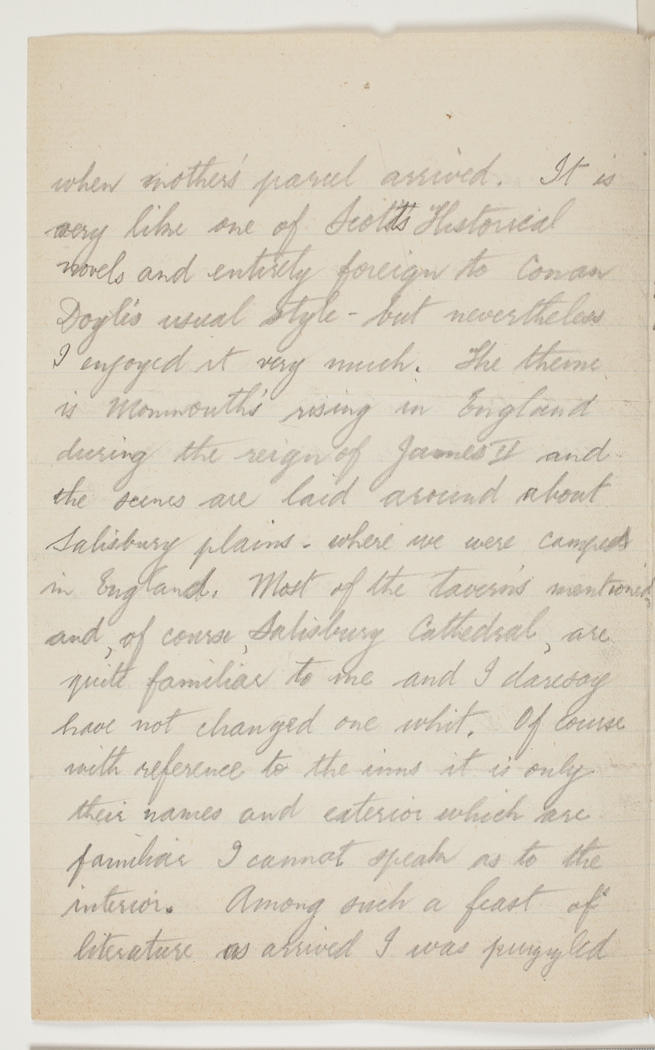 when mother's parcel arrived. It is
very like one of Scott's Historical
novels and entirely foreign to Conan
Doyle's usual style - but nevertheless
I enjoyed it very much. The theme
is Monmouth's rising in England
during the reign of James II and
the scenes are laid around about
Salisbury plains - where we were camped
in England. Most of the taverns mentioned,
and, of course, Salisbury Cathedral, are
quite familiar to me and I daresay
have not changed one whit. Of course
with reference to the inns it is only
their names and exterior which are
familiar I cannot speak as to the
interior. Among such a feast of
literature as arrived I was puzzled